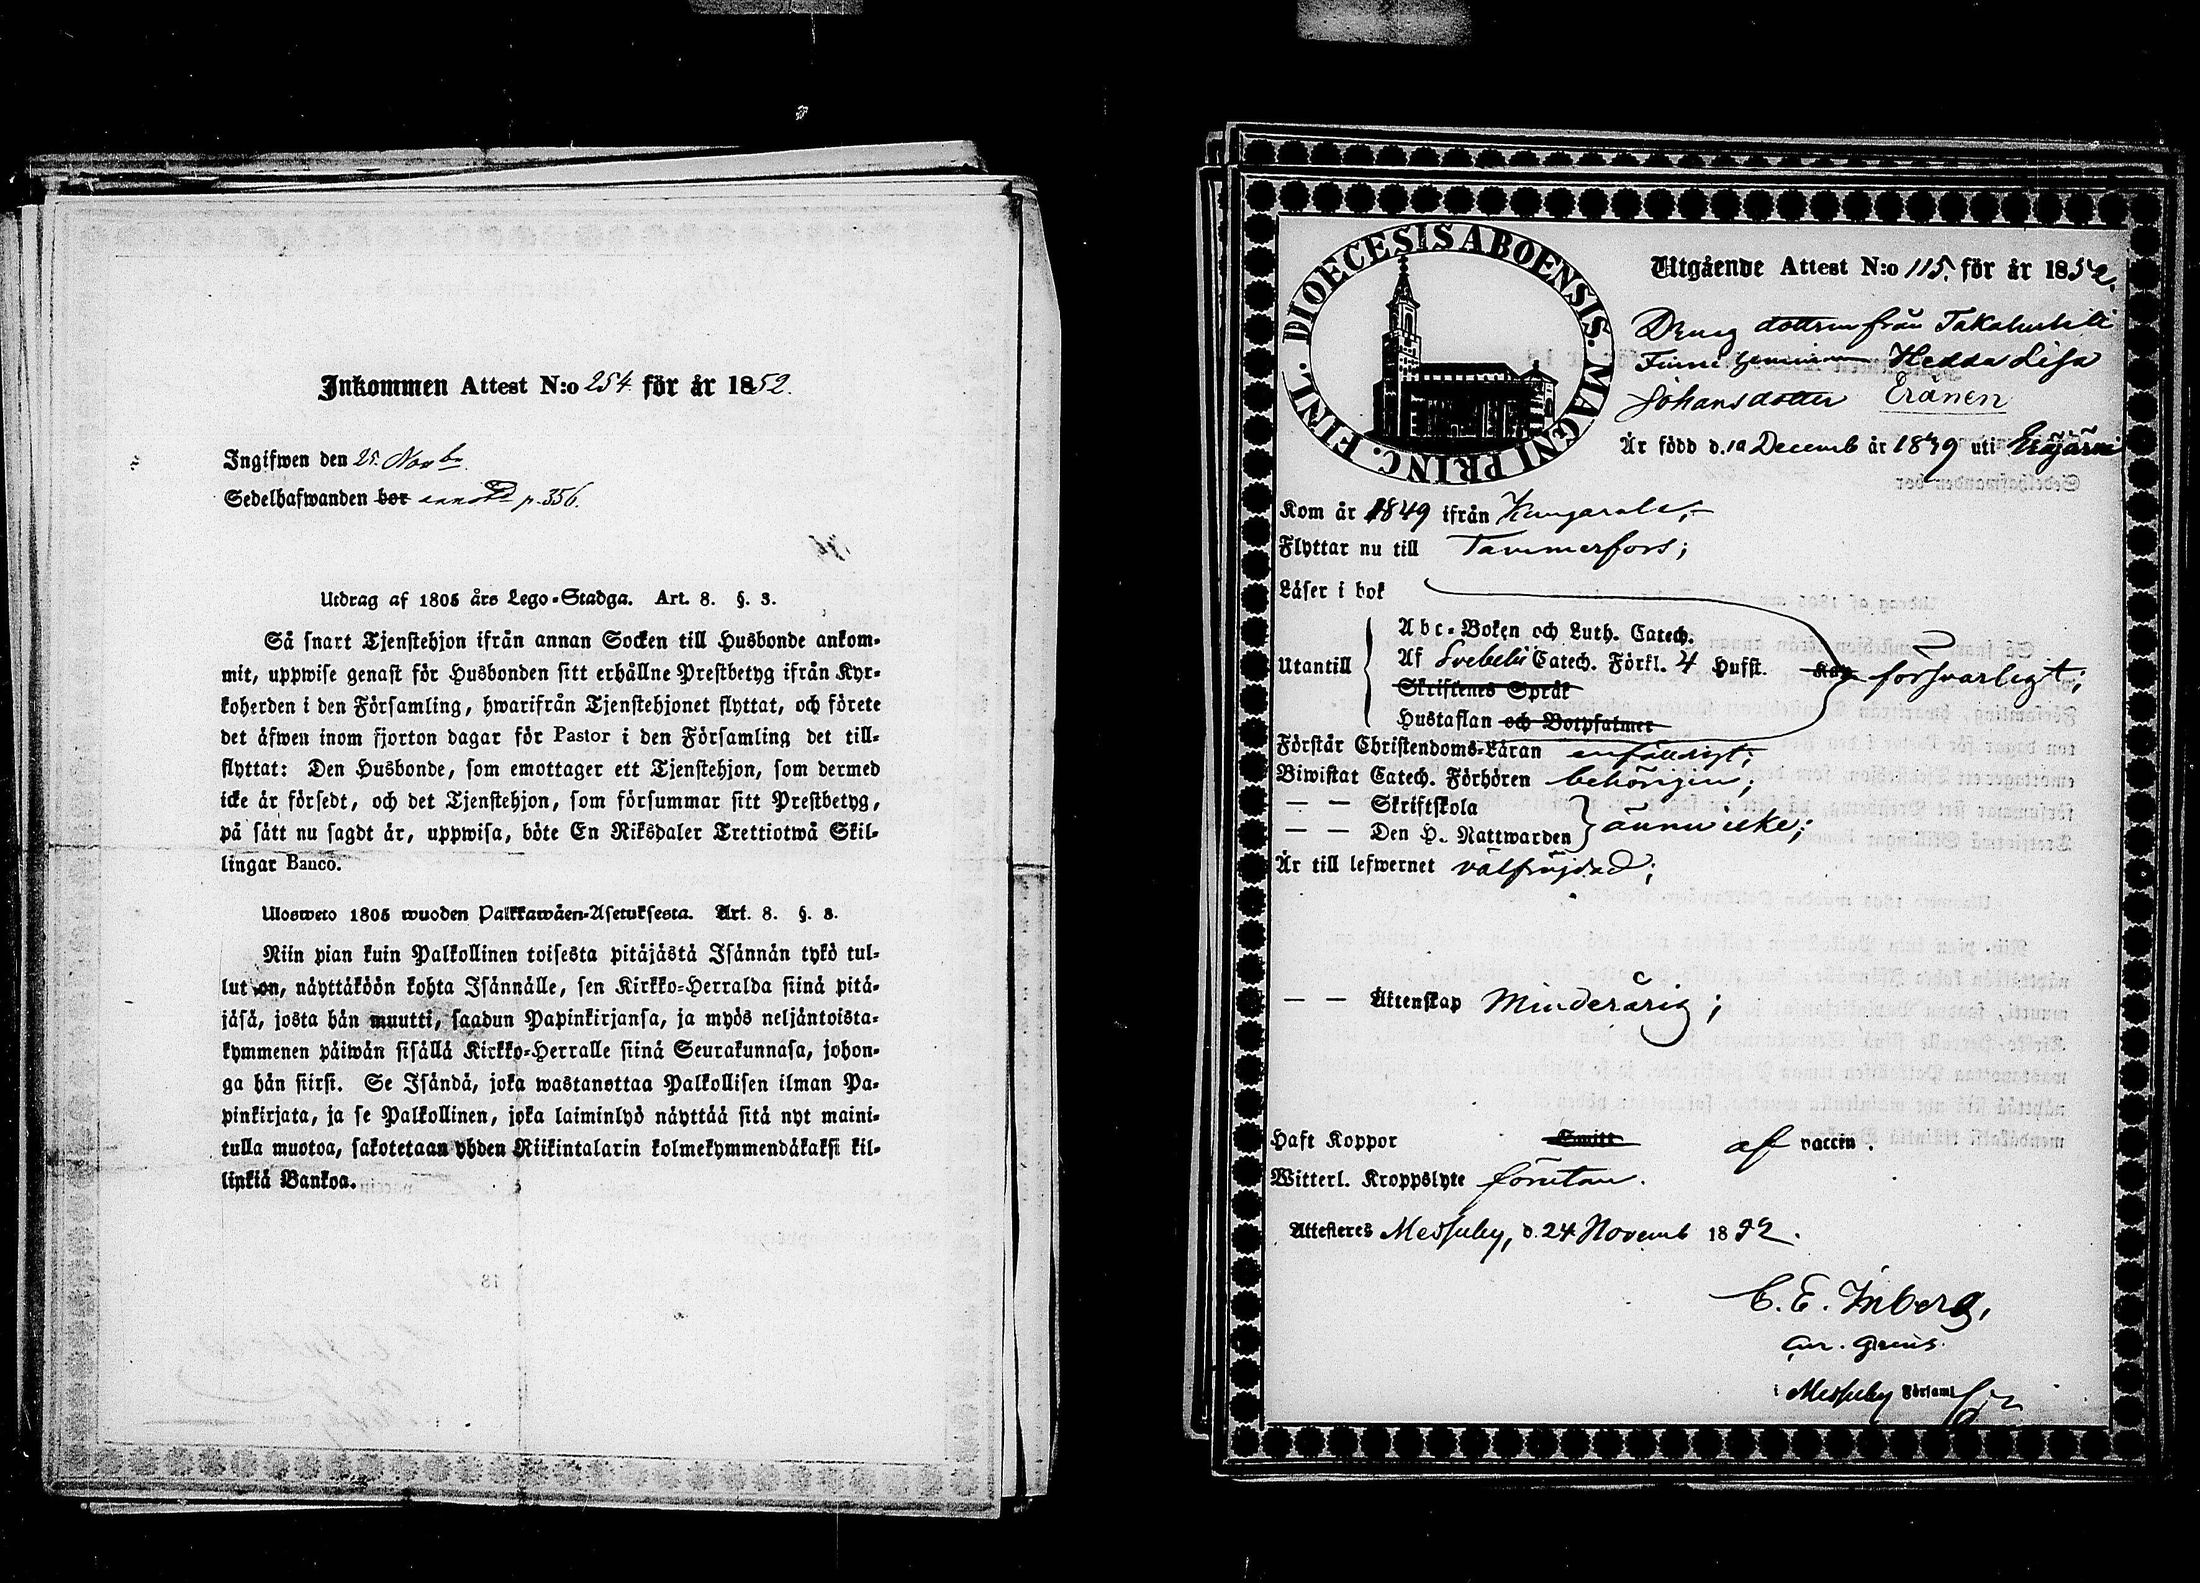 Inkommen Attest N:o 254 för år 1852.
Ingifwen den 25. Novbr
Sedelhafwanden bor annot p. 356.
Utdrag af 1805 års Lego-Stadga. Art. 8. §. 3.
Så snart Tjenstehjon ifrån annan Socken till Husbonde ankom-
mit, uppwise genast för Husbonden sitt erhållne Prestbetyg ifrån Kyr-
koherden i den Församling, hwarifrån Tjenstehjonet flyttat, och förete
det äfwen inom fjorton dagar för Pastor i den Församling det till-
flyttat: Den Husbonde, som emottager ett Tjenstehjon, som dermed
icke är försedt, och det Tjenstehjon, som försummar sitt Prestbetyg,
på sätt nu sagdt är, uppwisa, böte En Riksdaler Trettiotwå Skil-
lingar Banco.
Ulosweto 1805 wuoden Palkkawäen-Asetuksesta. Art. 8. §. 3.
Niin pian kuin Palkollinen toisesta pitäjästä Isännän tykö tul-
lut on, näyttäköön kohta Isännälle, sen Kirkko-Herralda siinä pitä-
jäsä, josta hän muutti, saadun Papinkirjansa, ja myös neljäntoista-
kymmenen päiwän sisällä Kirkko-Herralle siinä Seurakunnasa, johon-
ga hän siirsi. Se Isändä, joka wastanottaa Palkollisen ilman Pa-
pinkirjata, ja se Palkollinen, joka laiminlyö näyttää sitä nyt maini-
tulla muotoa, sakotetaan yhden Riikintalarin kolmekymmendäkaksi kil-
linkiä Bankoa.
DIOECESIS ABOENSIS. MAGNI PRINC. FINL.
Utgående Attest N:o 115. för år 1852.
Dreng dottren från Takahuhti
Hedda Lisa
Johansdotter Eränen
Är född d. 10 Decemb år 1839 uti Eräjärvi
Kom år 1849 ifrån Kangasala;
Flyttar nu till Tammerfors;
Läser i bok
Utantill
Abc-Boken och Luth. Catech.
Af Svebelii Catech. Förkl. 4 Hufst. försvarligt;
Skriftenes Språk
Hustaflan och Botpsalmer
Förstår Christendoms-Läran enfäldigt;
Biwistat Catech. Förhören behörigen;
— — Skriftskola
— — Den H. Nattwarden ännu icke;
Är till lefwernet välfrejdad;
— — Äktenskap Minderårig;
Haft Koppor Smitt af vaccin.
Witterl. Kroppslyte förutan.
Attesteres Messuby, d. 24 Novemb 1852.
C. E. Inberg,
i Messuby Församl